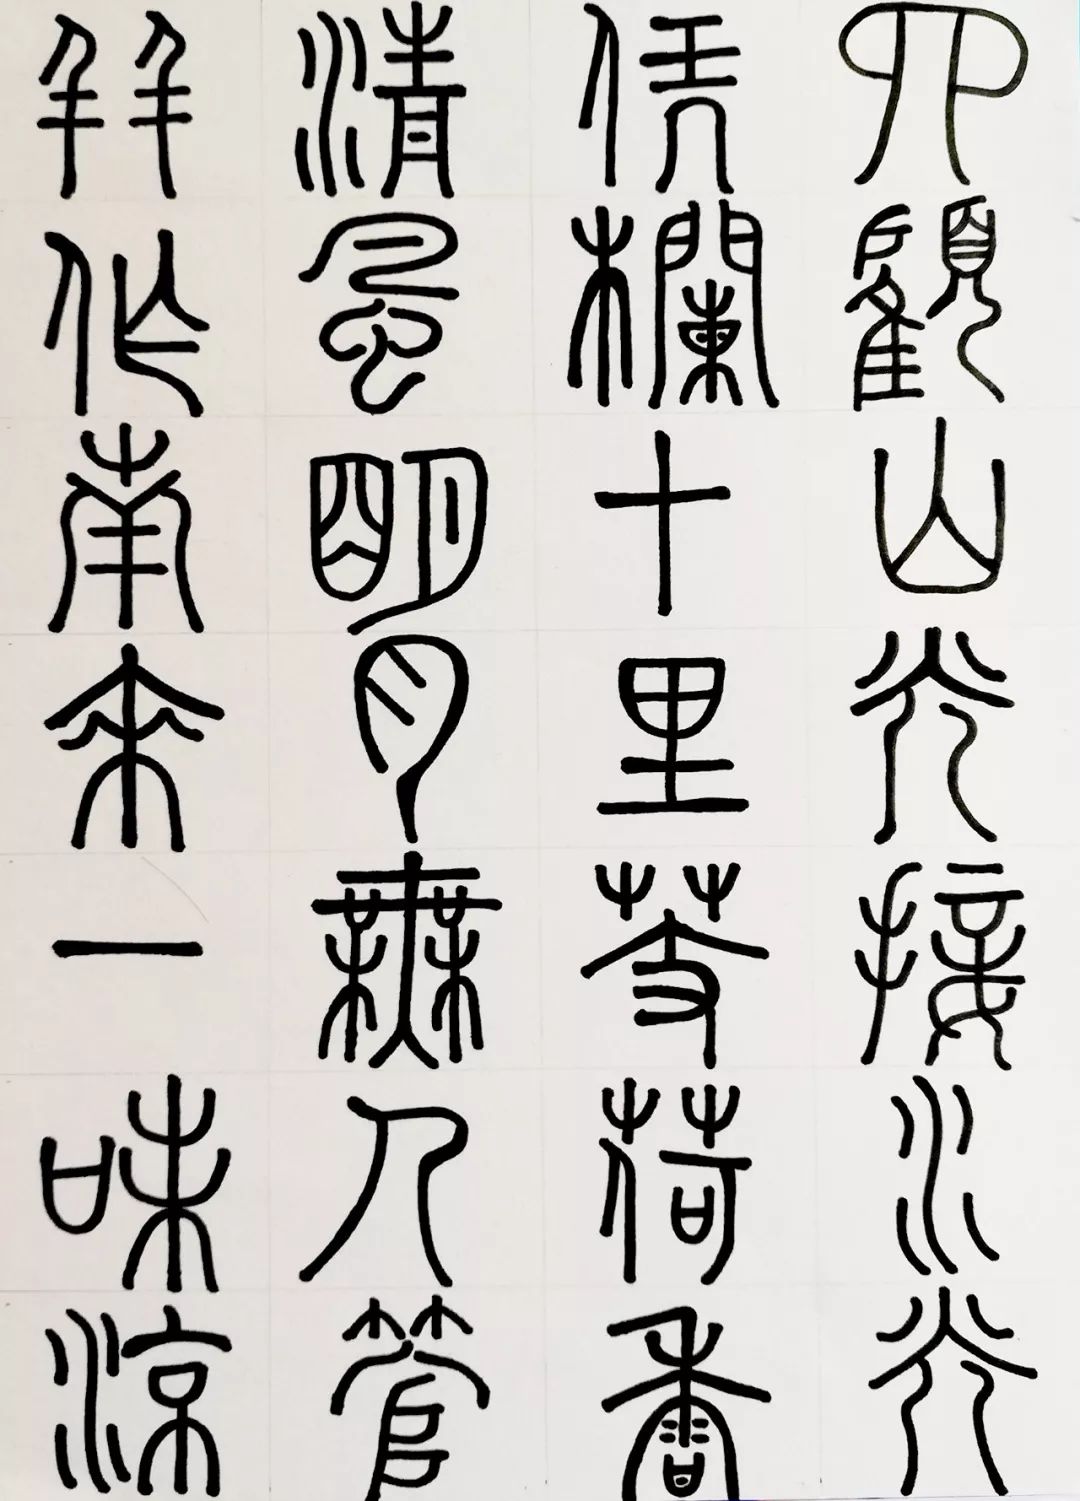 四顧山光接水光
凭欄十里芰荷香
清風明月無人管
并作南來一味涼